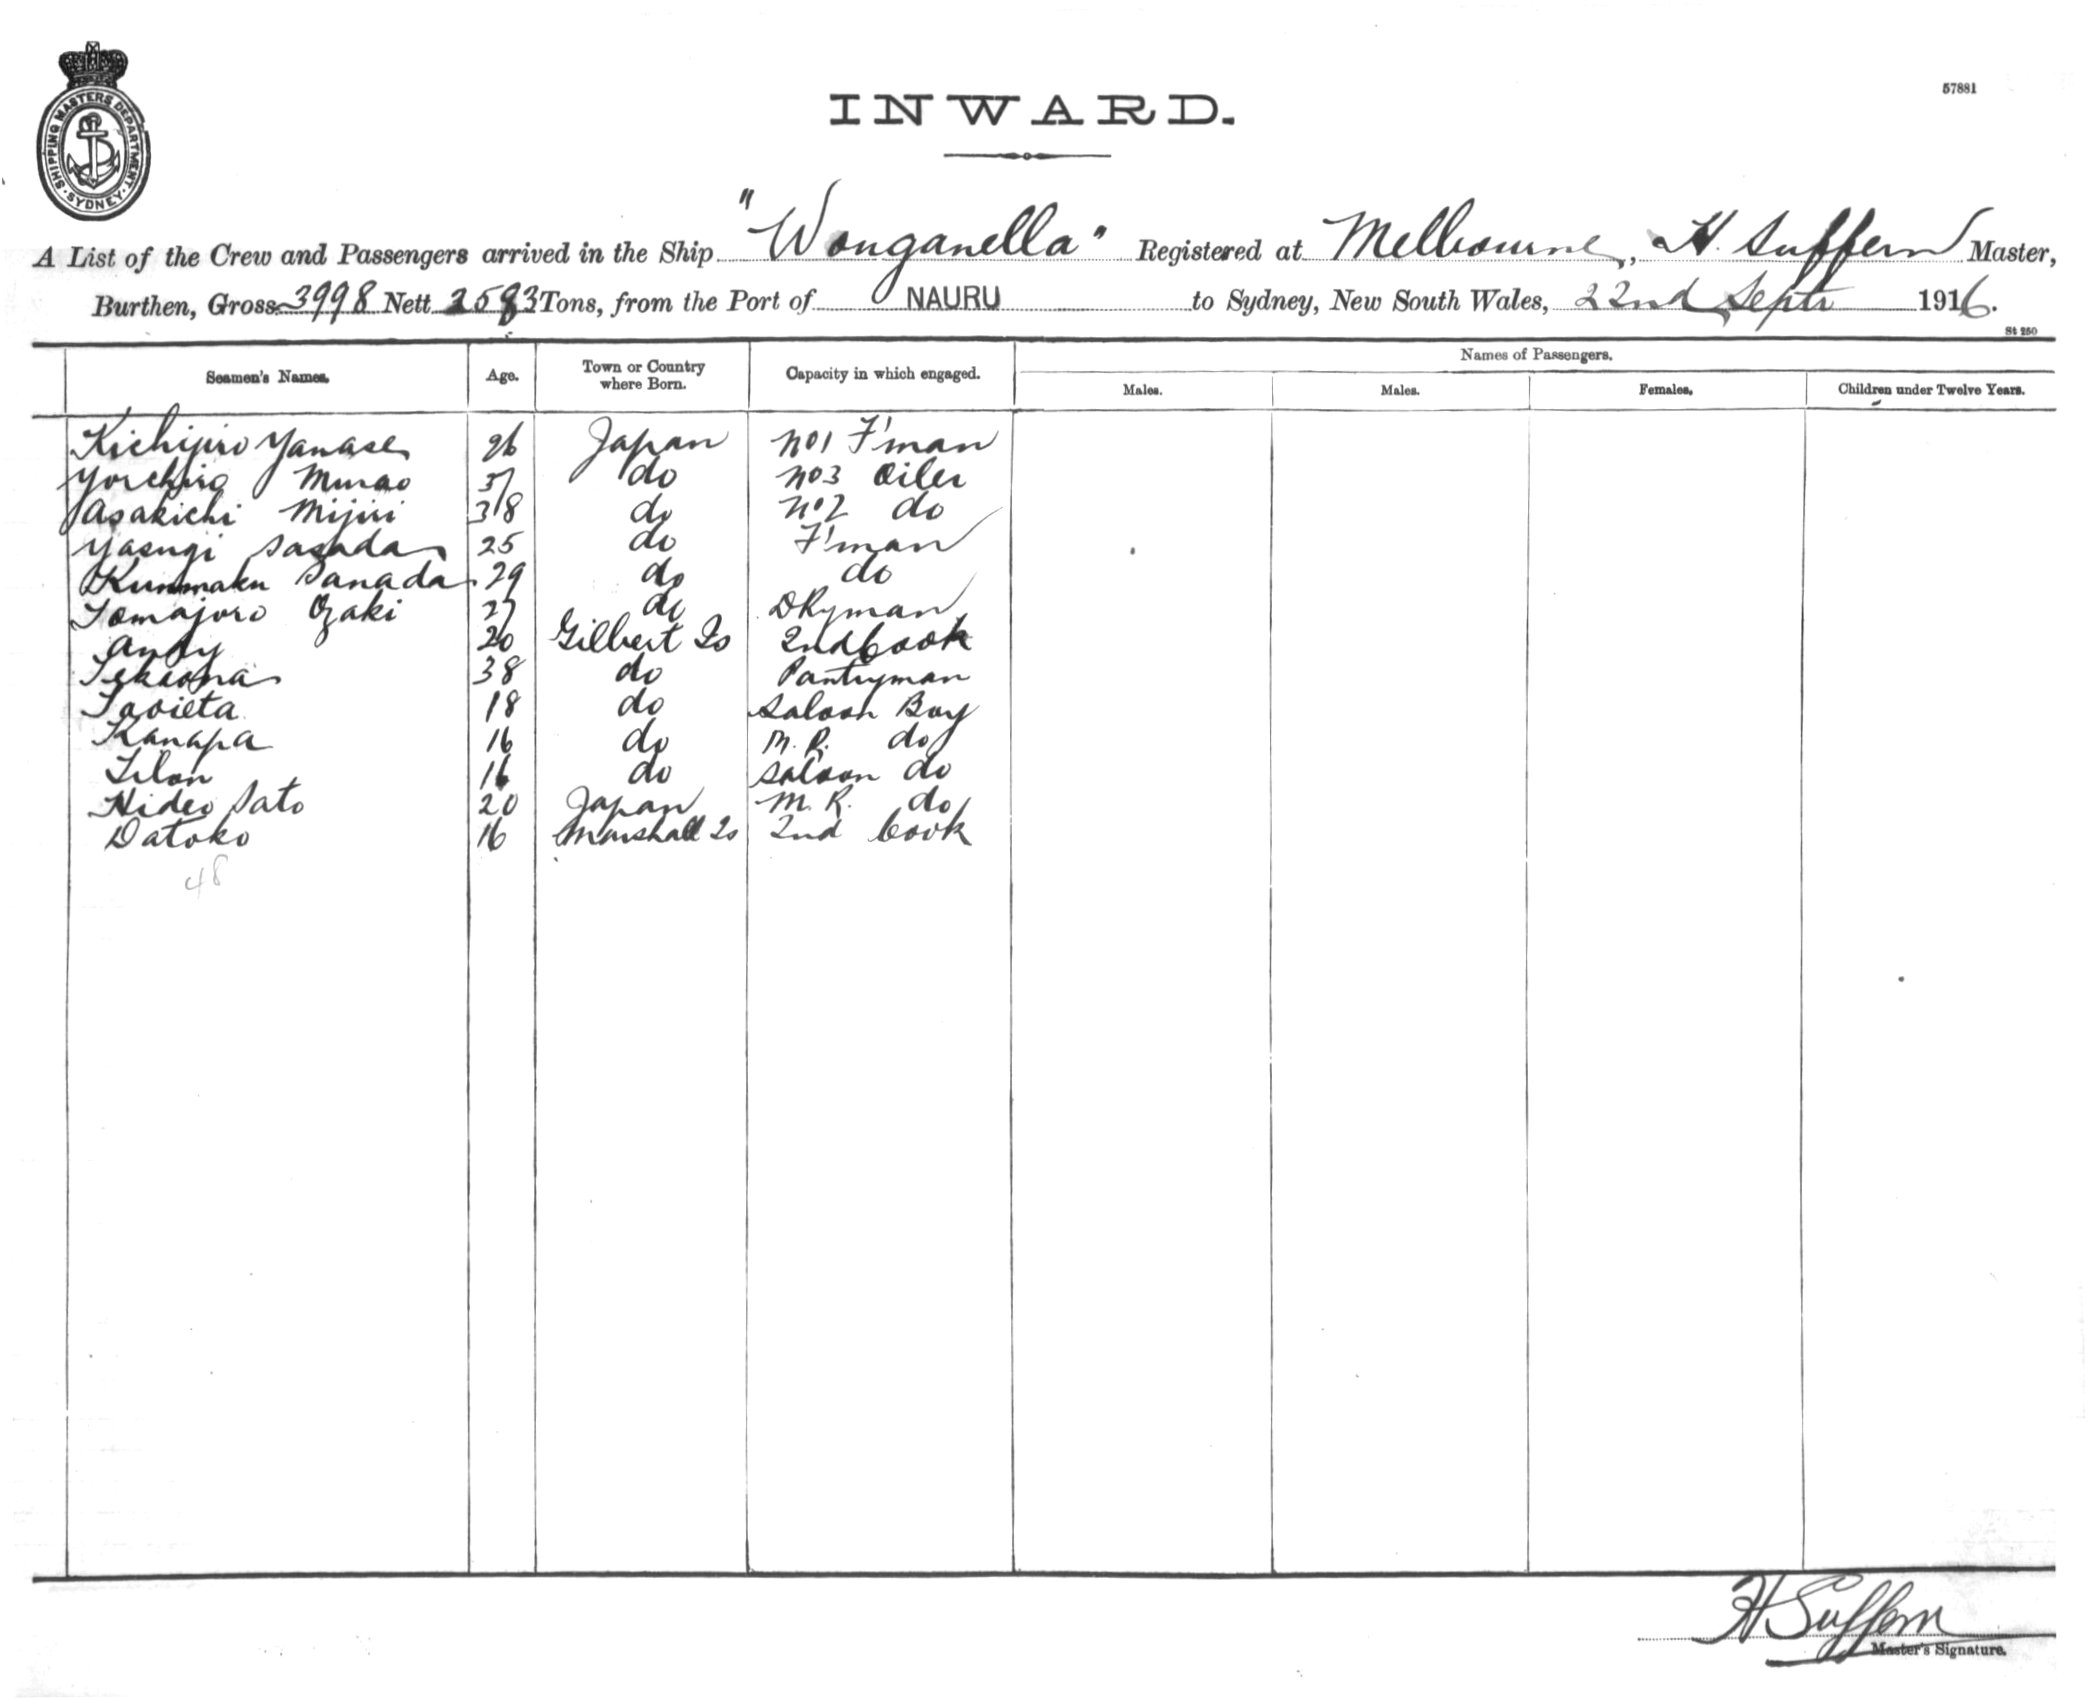 SHIPPING MASTERS DEPARTMENT. SYDNEY
57881
INWARD.
A List of the Crew and Passengers arrived in the Ship "Wonganella" Registered at Melbourne, H. Suffern Master,
Burthen, Gross 3998 Nett Tons, from the Port of NAURU to Sydney, New South Wales, 22nd Septr 1916.
St 250
Seamen's Names. Age. Town or Country where Born. Capacity in which engaged. Names of Passengers.
Males. Males. Females. Children under Twelve Years.
Kichijiro Yanase 26 Japan No1 F'man
Yoichiro Murao 37 do No3 Oiler
Asakichi Mijiri 38 do No2 do
Yasugi Sasada 25 do F'man
Sanada 29 do do
Tomajoro Ozaki 27 do DKyman
Andy 20 Gilbert Is 2nd Cook
38 do Pantryman
18 do Saloon Boy
Kanapa 16 do M.R. do
16 do Saloon do
Hideo Sato 20 Japan M.R. do
Datoko 16 Marshall Is 2nd Cook
48
H Suffern
Master's Signature.